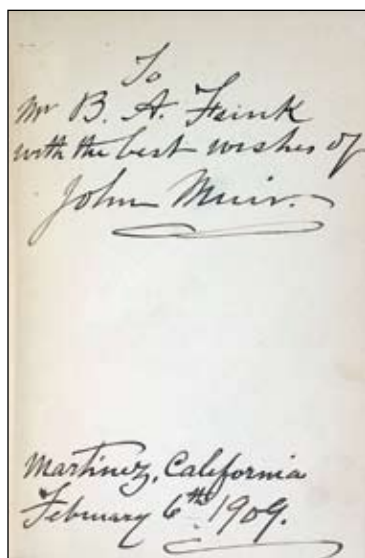 To
Mr B. A. Frink
with the best wishes of
John Muir.
Martinez, California
February 6th 1909.